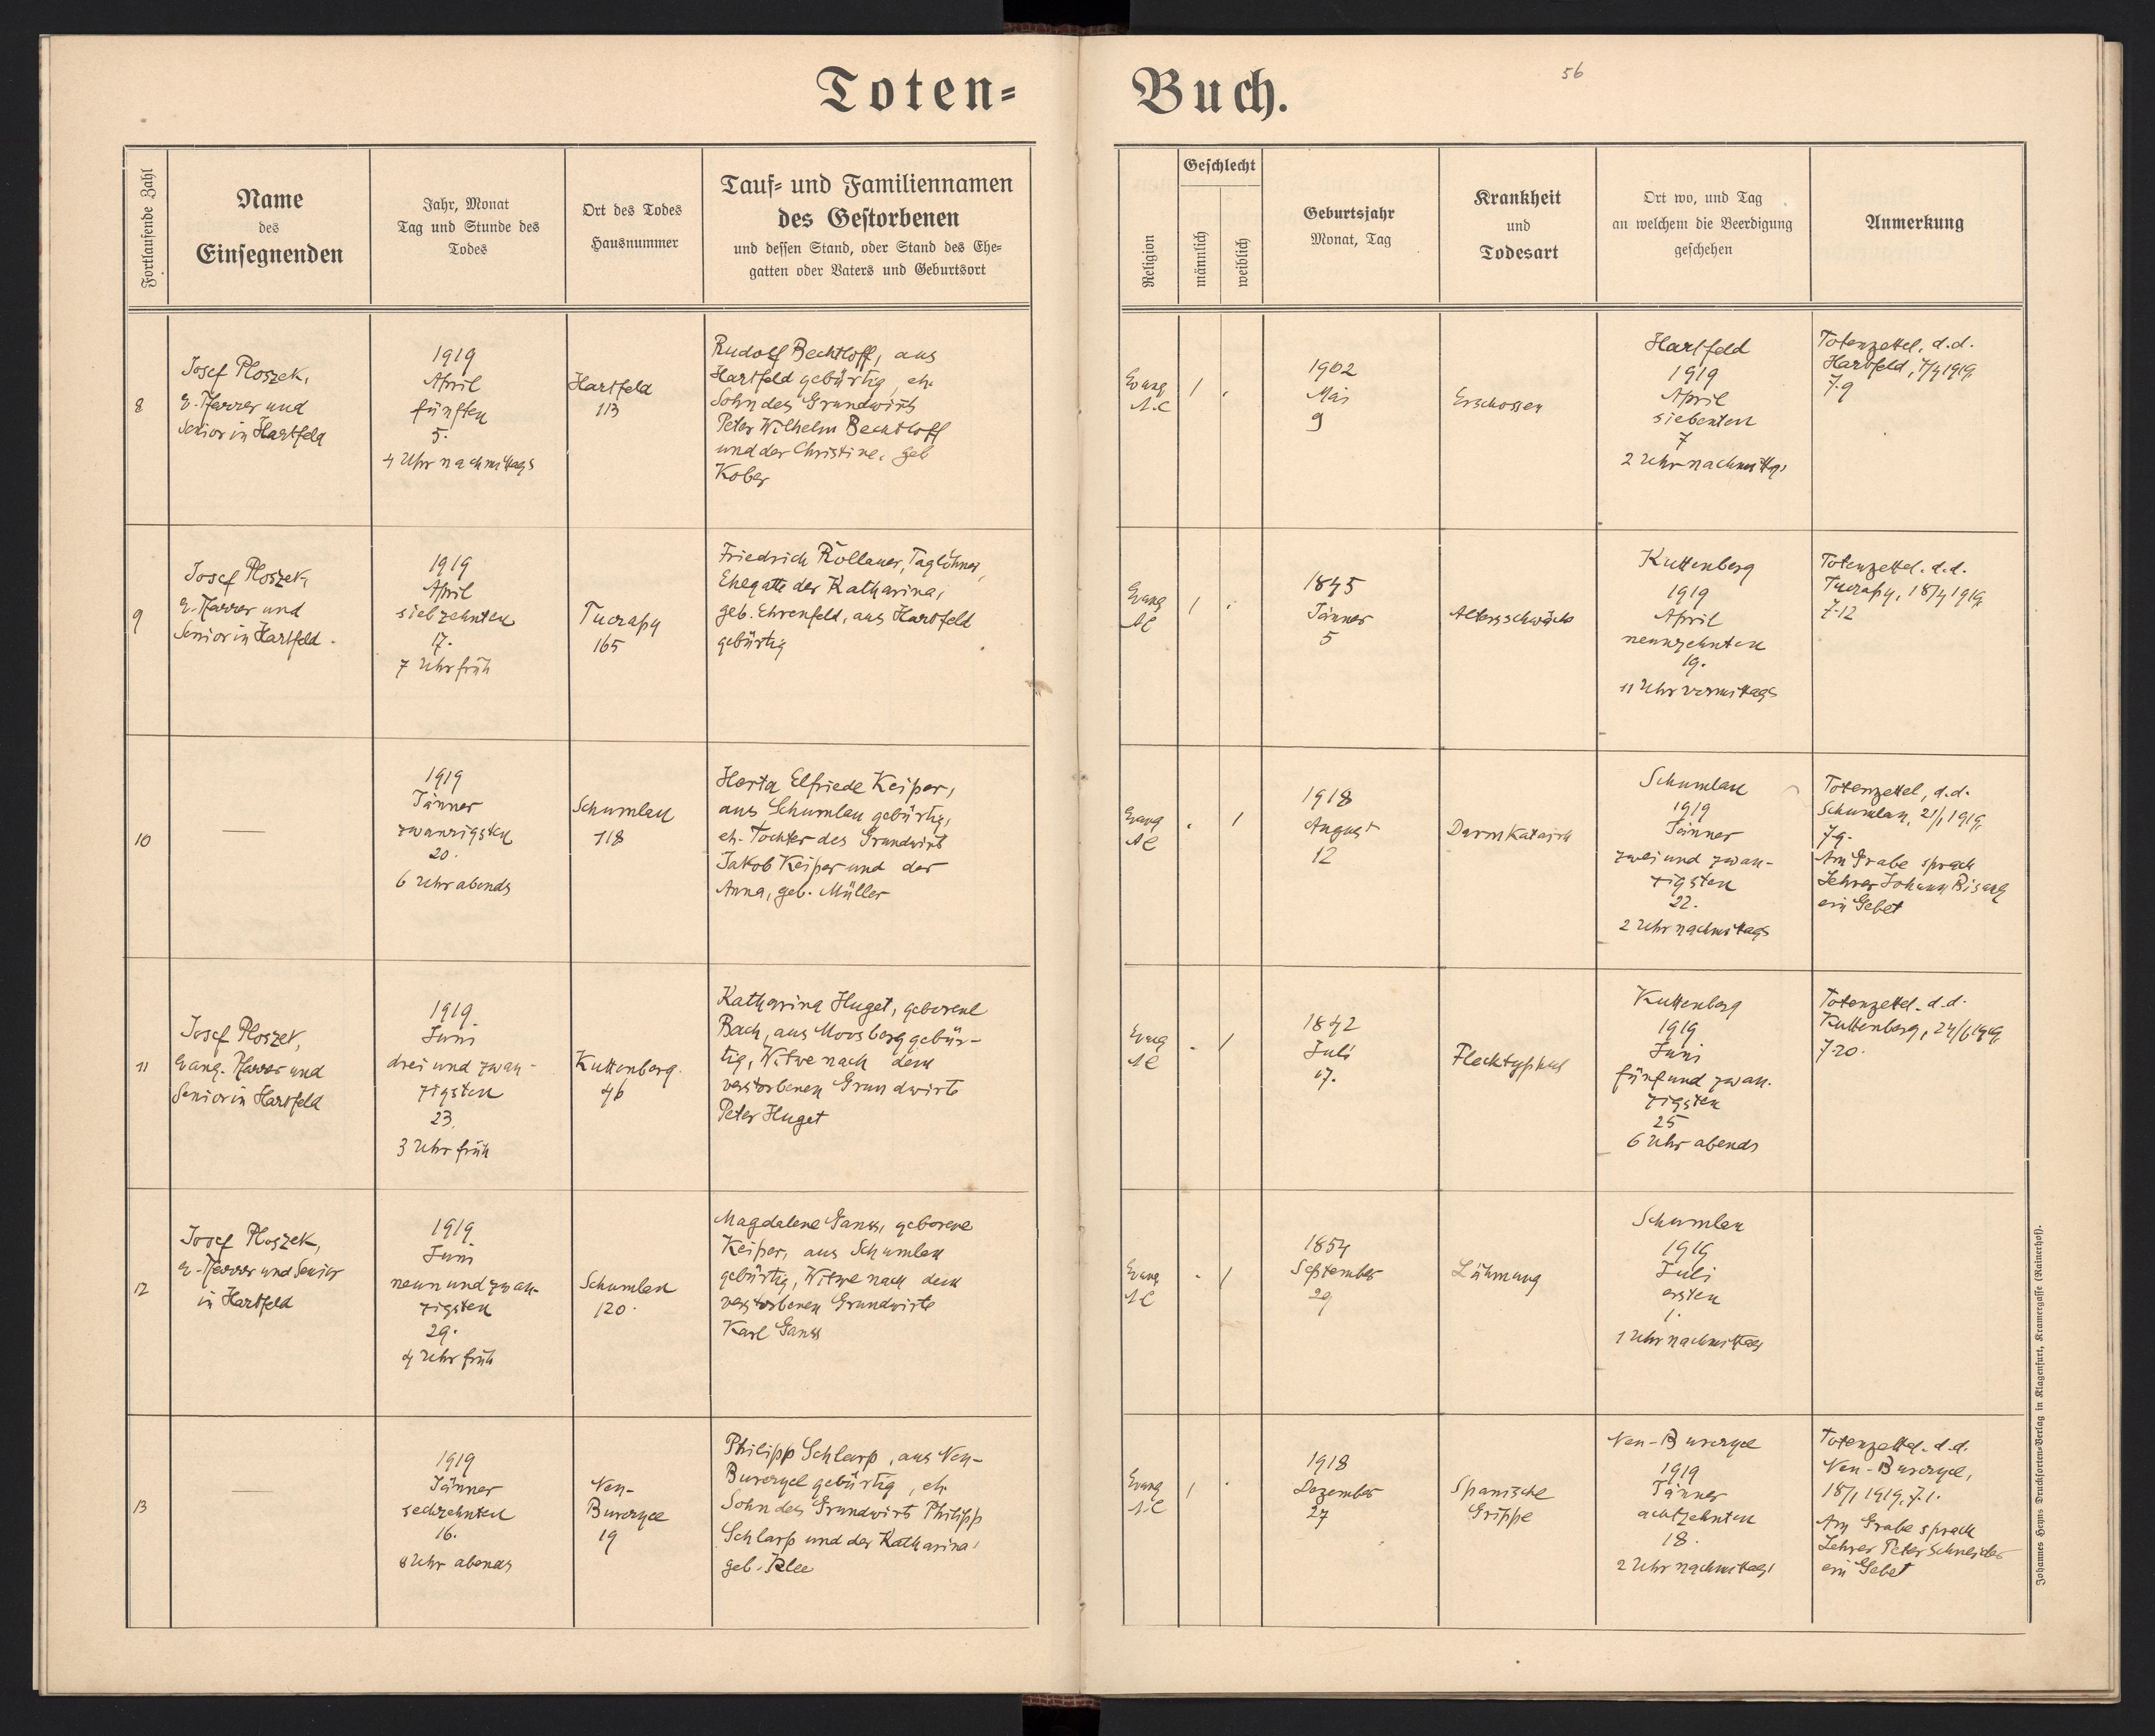 Toten-
Buch.
56
Fortlaufende Zahl
Name
des
Einsegnenden
Jahr, Monat
Tag und Stunde des
Todes
Ort des Todes
Hausnummer
Tauf- und Familiennamen
des Gestorbenen
und dessen Stand, oder Stand des Ehe-
gatten oder Vaters und Geburtsort
Religion
Geschlecht
männlich
weiblich
Geburtsjahr
Monat, Tag
Krankheit
und
Todesart
Ort wo, und Tag
an welchem die Beerdigung
geschehen
Anmerkung
8
Josef Ploszek,
e. Pfarrer und
Senior in Hartfeld
1919
April
fünften
5.
4 Uhr nachmittags
Hartfeld
113
Rudolf Bechtloff, aus
Hartfeld gebürtig, eh.
Sohn des Grundwirts
Peter Wilhelm Bechtloff
und der Christine, geb
Kober
Evang
A.C
1
1902
Mai
9
Erschossen
Hartfeld
1919
April
siebenten
7
2 Uhr nachmittgs
Totenzettel, d.d.
Hartfeld, 7/4 1919,
7.9
9
Josef Ploszek,
e. Pfarrer und
Senior in Hartfeld.
1919
April
siebzehnten
17.
7 Uhr früh
Tucrapy
165
Friedrich Rollauer, Taglöhner,
Ehegatte der Katharina,
geb. Ehrenfeld, aus Hartfeld
gebürtig
Evang
AC
1
1845
Jänner
5
Altersschwäche
Kuttenberg
1919
April
neunzehnten
19.
11 Uhr vormittags
Totenzettel. d.d.
Tucrapy, 18/4 1919,
7.12
10
—
1919
Jänner
zwanzigsten
20.
6 Uhr abends
Schumlau
118
Herta Elfriede Keiper,
aus Schumlau gebürtig,
eh. Tochter des Grundwirts
Jakob Keiper und der
Anna, geb. Müller
Evang
AC
1
1918
August
12
Darmkatarrh
Schumlau
1919
Jänner
zwei und zwan-
zigsten
22.
2 Uhr nachmittags
Totenzettel, d.d.
Schumlau, 21/1 1919,
7.9.
Am Grabe sprach
Lehrer Johann Bisanz
ein Gebet
11
Josef Ploszek,
Evang. Pfarrer und
Senior in Hartfeld
1919
Juni
drei und zwan-
zigsten
23.
3 Uhr früh
Kuttenberg.
46
Katharina Huget, geborene
Bach, aus Moosberg gebür-
tig, Witwe nach dem
verstorbenen Grundwirte
Peter Huget
Evang
AC
1
1842
Juli
17.
Flecktyphus
Kuttenberg
1919
Juni
fünf und zwan-
zigsten
25
6 Uhr abends
Totenzettel. d.d.
Kuttenberg, 24/6 1919,
7.20.
12
Josef Ploszek,
e. Pfarrer und Senior
in Hartfeld
1919
Juni
neun und zwan-
zigsten
29.
4 Uhr früh
Schumlau
120.
Magdalene Ganss, geborene
Keiper, aus Schumlau
gebürtig, Witwe nach dem
verstorbenen Grundwirte
Karl Ganss
Evang
AC
1
1854
September
29
Lähmung
Schumlau
1919
Juli
ersten
1.
1 Uhr nachmittags
13
—
1919
Jänner
sechzehnten
16.
8 Uhr abends
Neu-
Burczyce
19
Philipp Schlarp, aus Neu-
Burczyce gebürtig, eh.
Sohn des Grundwirts Philipp
Schlarp und der Katharina,
geb. Klee
Evang
A.C
1
1918
Dezember
27
Spanische
Grippe
Neu-Burczyce
1919
Jänner
achtzehnten
18.
2 Uhr nachmittags
Totenzettel. d.d.
Neu-Burczyce,
18/1 1919, 7.1.
Am Grabe sprach
Lehrer Peter Schneider
ein Gebet
Johannes Heyns Drucksorten-Verlag in Klagenfurt, Kramergasse (Rainerhof).